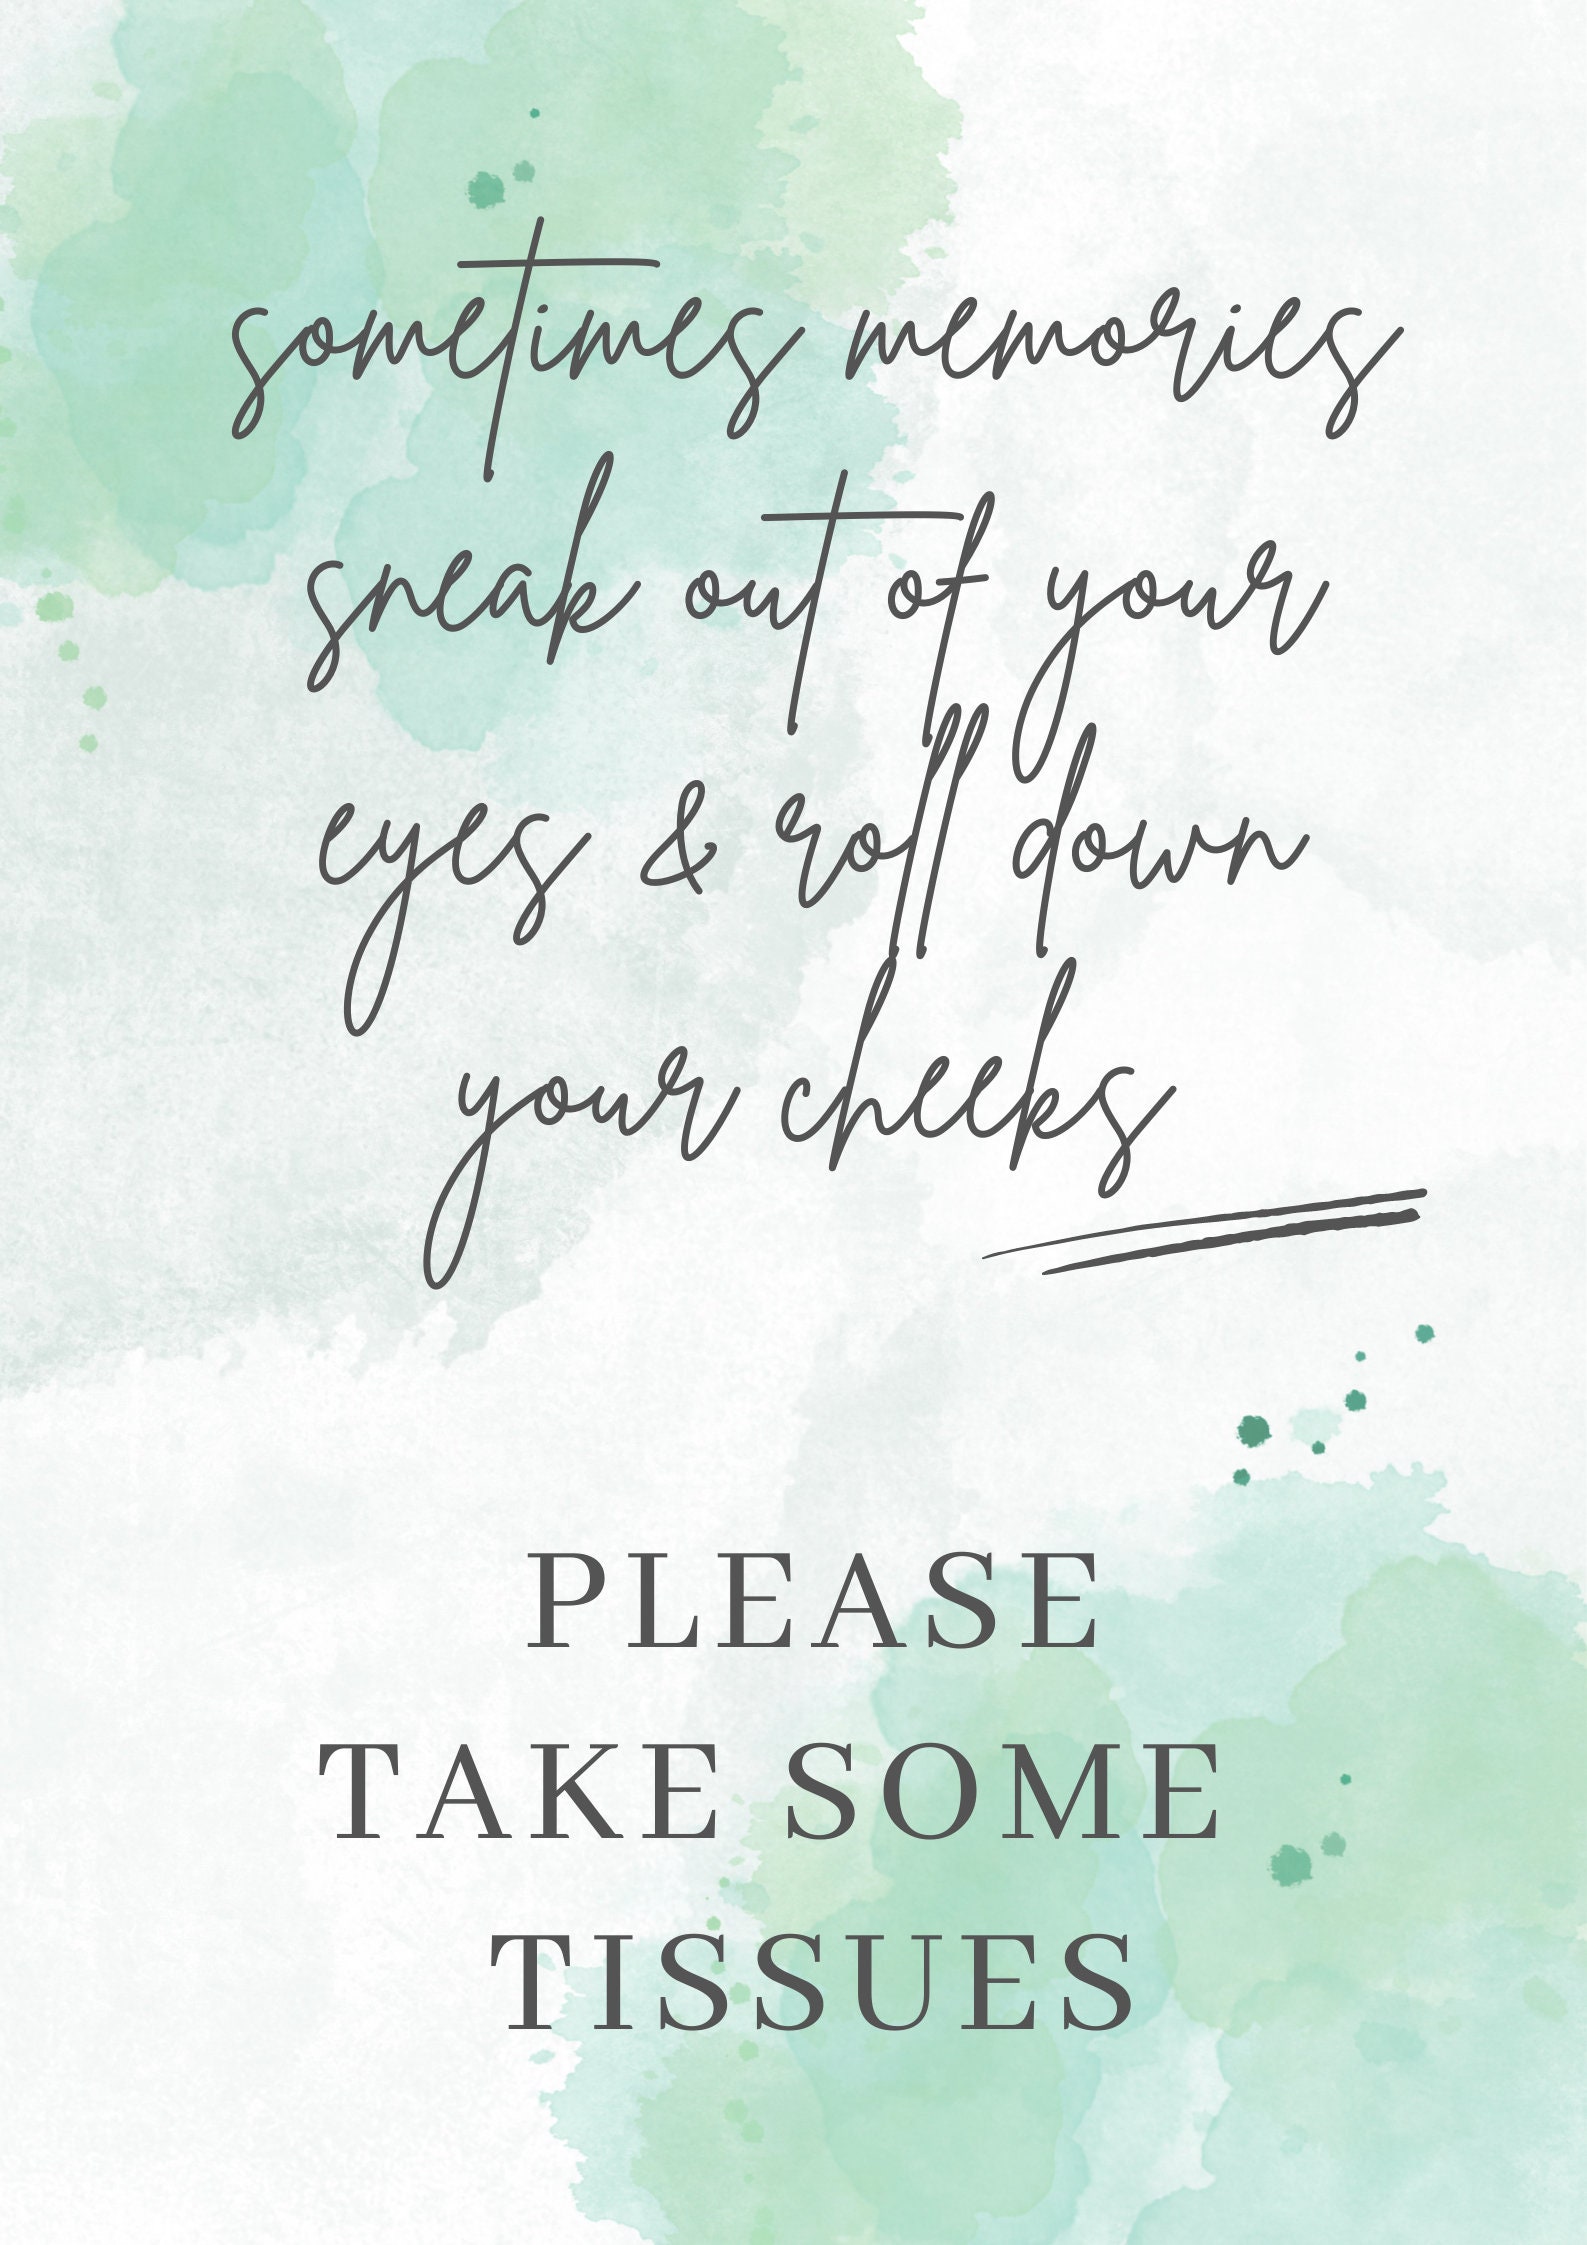 sometimes memories
sneak out of your
eyes & roll down
your cheeks
PLEASE
TAKE SOME
TISSUES